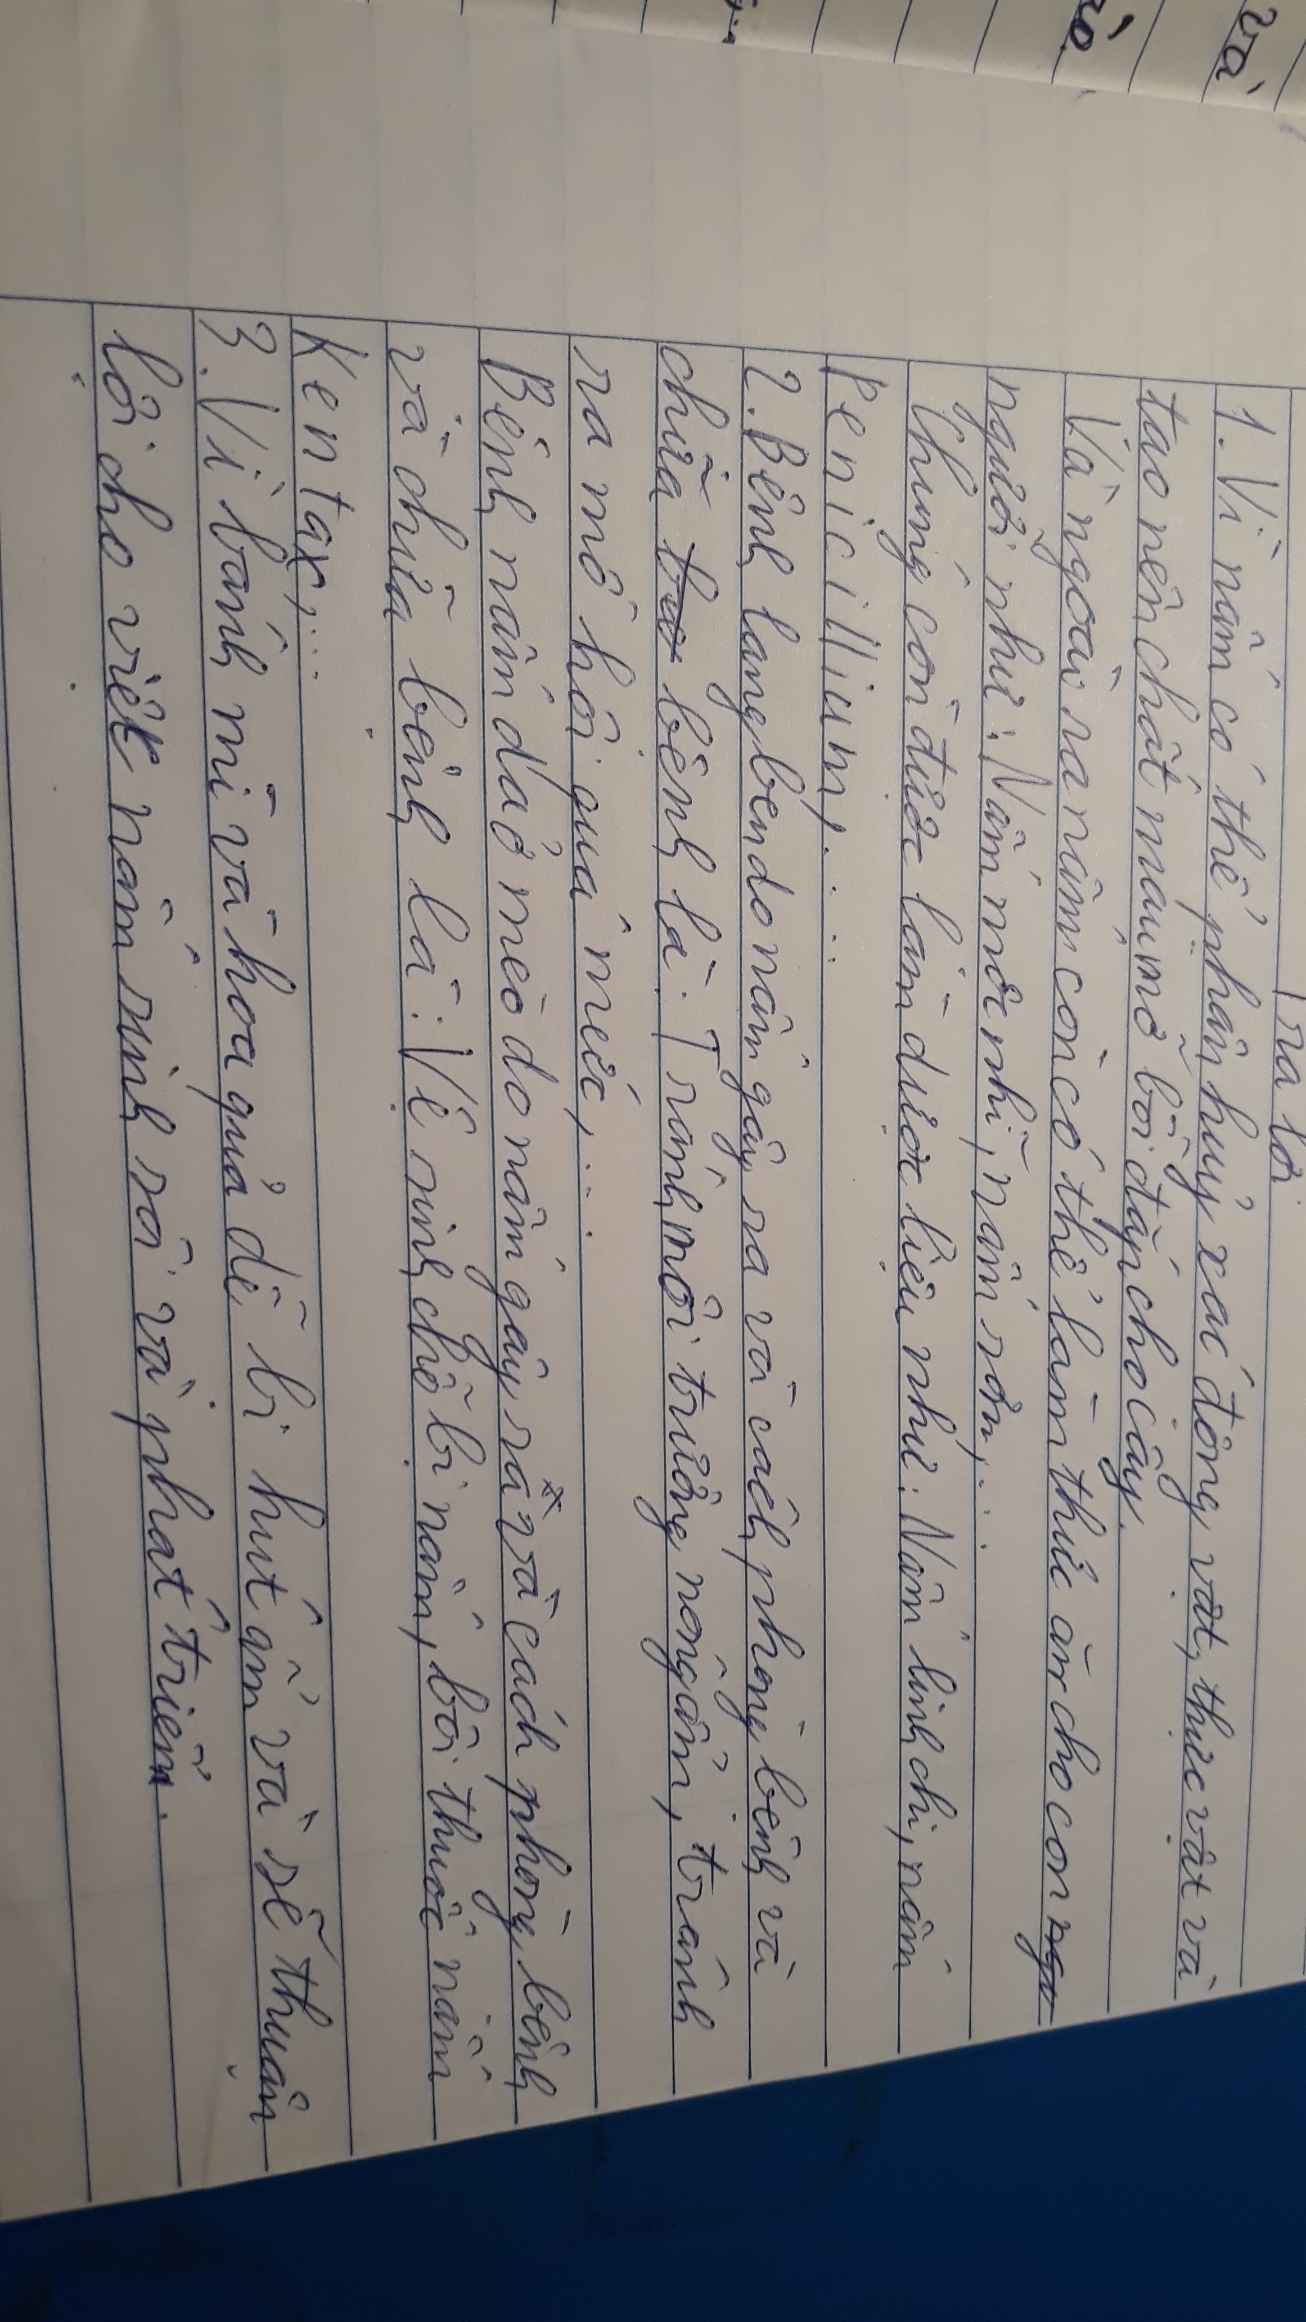 Trả lời
1. Vì nấm có thể phân huỷ xác động vật, thực vật và
tạo nên chất màu mỡ bồi đắp cho cây.
Và ngoài ra nấm còn có thể làm thức ăn cho con ngư
người như: Nấm mộc nhĩ, nấm rơm,...
Chúng còn được làm dược liệu như: Nấm linh chi, nấm
Penicillium,...
2. Bệnh lang ben do nấm gây ra và cách phòng bệnh và
chữa trơ bệnh là: Tránh môi trường nóng ẩm, tránh
ra mồ hôi quá mức,...
Bệnh nấm da ở mèo do nấm gây ra và cách phòng bệnh
và chữa bệnh là: Vệ sinh chỗ bị nấm, bôi thuốc nấm
Kentax,...
3. Vì bánh mì và hoa quả dễ bị hút ẩm và sẽ thuận
lợi cho việc nấm sinh sôi và phát triển.
và